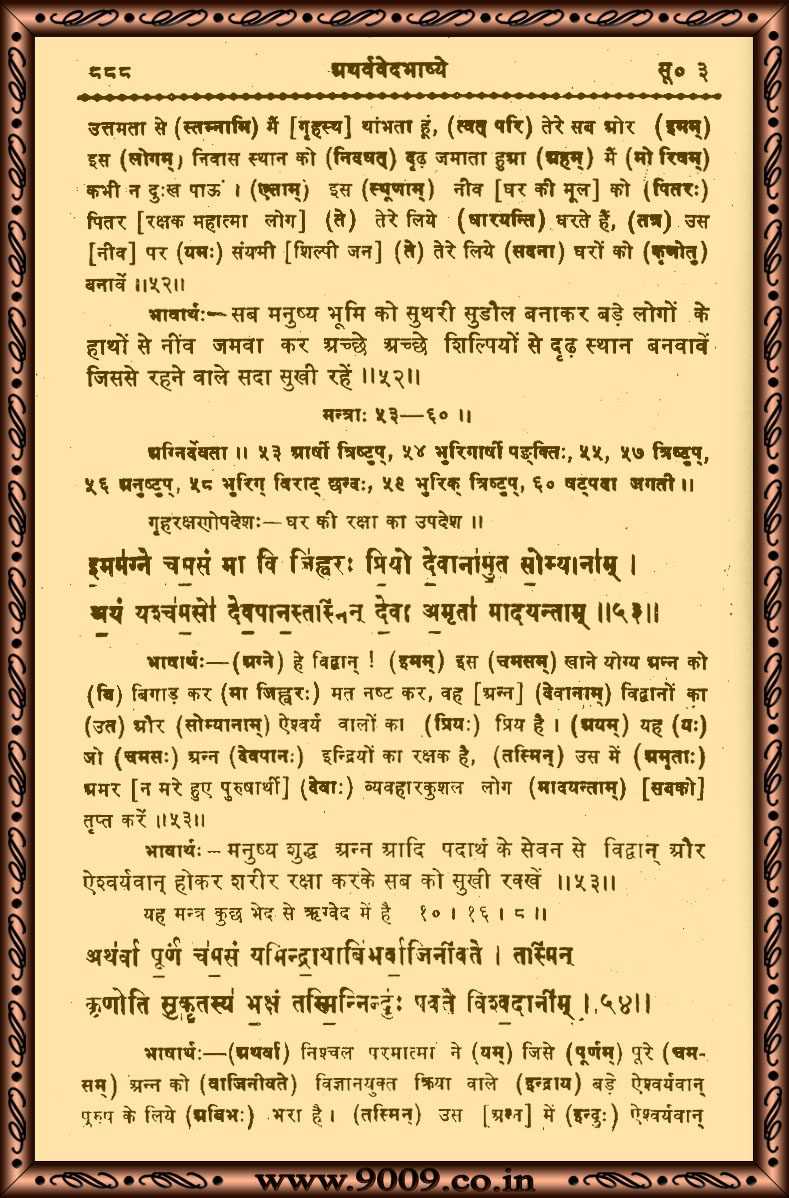 ८८८ अथर्ववेदभाष्ये सू० ३
उत्तमता से (स्तभ्नामि) मैं [गृहस्थ] थांभता हूं, (त्वत् परि) तेरे सब ओर (इमम्)
इस (लोगम्) निवास स्थान को (निदधत्) दृढ़ जमाता हुआ (अहम्) मैं (मो रिषम्)
कभी न दुःख पाऊं । (एताम्) इस (स्थूणाम्) नीव [घर की मूल] को (पितरः)
पितर [रक्षक महात्मा लोग] (ते) तेरे लिये (धारयन्ति) धरते हैं, (तत्र) उस
[नीव] पर (यमः) संयमी [शिल्पी जन] (ते) तेरे लिये (सदना) घरों को (कृणोतु)
बनावें ॥५२॥
भावार्थः—सब मनुष्य भूमि को सुथरी सुडौल बनाकर बड़े लोगों के
हाथों से नींव जमवा कर अच्छे अच्छे शिल्पियों से दृढ़ स्थान बनवावें
जिससे रहने वाले सदा सुखी रहें ॥५२॥
मन्त्राः ५३—६० ॥
अग्निर्देवता ॥ ५३ आर्षी त्रिष्टुप्, ५४ भुरिगार्षी पङ्क्तिः, ५५, ५७ त्रिष्टुप्,
५६ अनुष्टुप्, ५८ भुरिग् विराट् छन्दः, ५९ भुरिक् त्रिष्टुप्, ६० षट्पदा जगती ॥
गृहरक्षणोपदेशः—घर की रक्षा का उपदेश ॥
इ॒मम॑ग्ने चम॒सं मा वि जि॑ह्वरः प्रि॒यो दे॒वाना॑मु॒त सो॒म्याना॑म् ।
अ॒यं यश्च॑म॒सो दे॑व॒पान॒स्तस्मि॑न् दे॒वा अ॒मृता॑ मादयन्ताम् ॥५३॥
भाषार्थः—(अग्ने) हे विद्वान् ! (इमम्) इस (चमसम्) खाने योग्य अन्न को
(वि) बिगाड़ कर (मा जिह्वरः) मत नष्ट कर, वह [अन्न] (देवानाम्) विद्वानों का
(उत) और (सोम्यानाम्) ऐश्वर्य वालों का (प्रियः) प्रिय है । (अयम्) यह (यः)
जो (चमसः) अन्न (देवपानः) इन्द्रियों का रक्षक है, (तस्मिन्) उस में (अमृताः)
अमर [न मरे हुए पुरुषार्थी] (देवाः) व्यवहारकुशल लोग (मादयन्ताम्) [सबको]
तृप्त करें ॥५३॥
भावार्थः – मनुष्य शुद्ध अन्न आदि पदार्थ के सेवन से विद्वान् और
ऐश्वर्यवान् होकर शरीर रक्षा करके सब को सुखी रक्खें ॥५३॥
यह मन्त्र कुछ भेद से ऋग्वेद में है १० । १६ । ८ ॥
अथ॑र्वा पू॒र्णं च॑म॒सं यमिन्द्रा॒याबि॑भर्वा॒जिनी॑वते । तस्मि॑न्
कृणोति सुकृ॒तस्य॑ भ॒क्षं तस्मि॒न्निन्दुः॑ पवते विश्व॒दानी॑म् ॥५४॥
भाषार्थः—(अथर्वा) निश्चल परमात्मा ने (यम्) जिसे (पूर्णम्) पूरे (चम-
सम्) अन्न को (वाजिनीवते) विज्ञानयुक्त क्रिया वाले (इन्द्राय) बड़े ऐश्वर्यवान्
पुरुष के लिये (अबिभः) भरा है । (तस्मिन्) उस [अन्न] में (इन्दुः) ऐश्वर्यवान्
www.9009.co.in